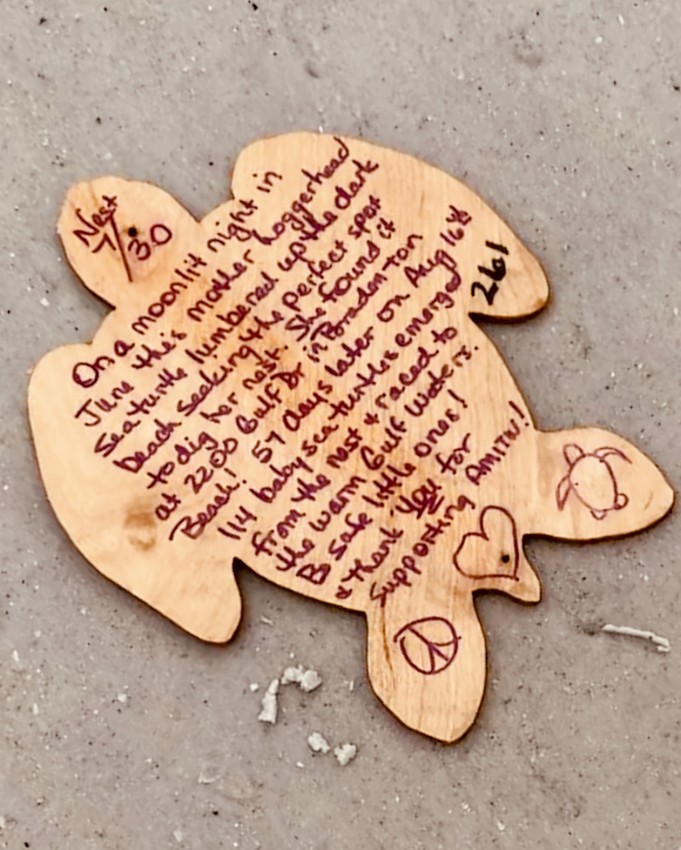 Nest
7/30
On a moonlit night in
June this mother loggerhead
sea turtle lumbered up the dark
beach seeking the perfect spot
to dig her nest. She found it
at 2200 Gulf Dr in Bradenton
Beach! 57 days later on Aug 16th
114 baby sea turtles emerged
from the nest & raced to
the warm Gulf waters.
Be safe little ones!
& thank you for
supporting AMITW!
2601